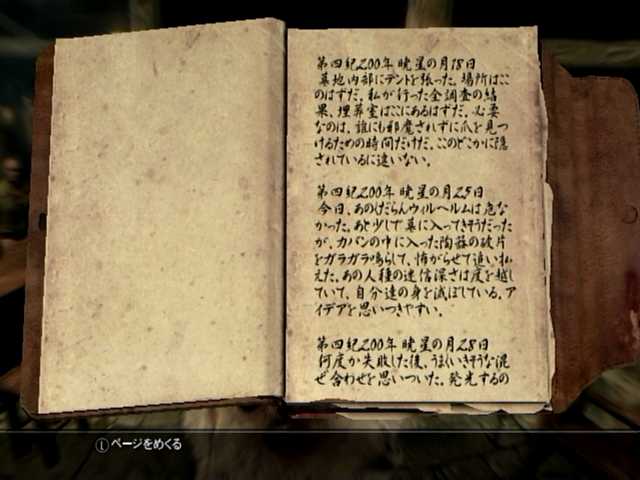 第四紀200年 暁星の月18日
墓地内部にテントを張った。場所はここ
のはずだ。私が行った全調査の結
果、埋葬室はここにあるはずだ。必要
なのは、誰にも邪魔されずに爪を見つ
けるための時間だけだ。ここのどこかに隠
されているに違いない。
第四紀200年 暁星の月25日
今日、あのくだらんウィルヘルムは危な
かった。あと少しで墓に入ってきそうだった
が、カバンの中に入った陶器の破片
をガラガラ鳴らして、怖がらせて追い払
えた。あの人種の迷信深さは度を越し
ていて、自分達の身を滅ぼしている。ア
イデアを思いつきやすい。
第四紀200年 暁星の月28日
何度か失敗した後、うまくいきそうな混
ぜ合わせを思いついた。発光するの
Lページをめくる